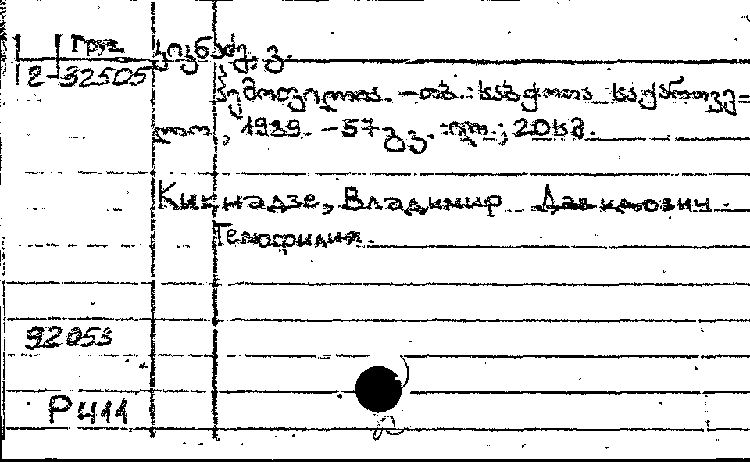 Груз
2-32505
კიკნაძე, ვ.
ჰემოფილია. – თბ.: საბჭოთა საქართვე=
ლო, 1989. – 57 გვ. : ილ.; 20 სმ.
Кикнадзе, Владимир Давидович.
Гемофилия.
92053
Р411